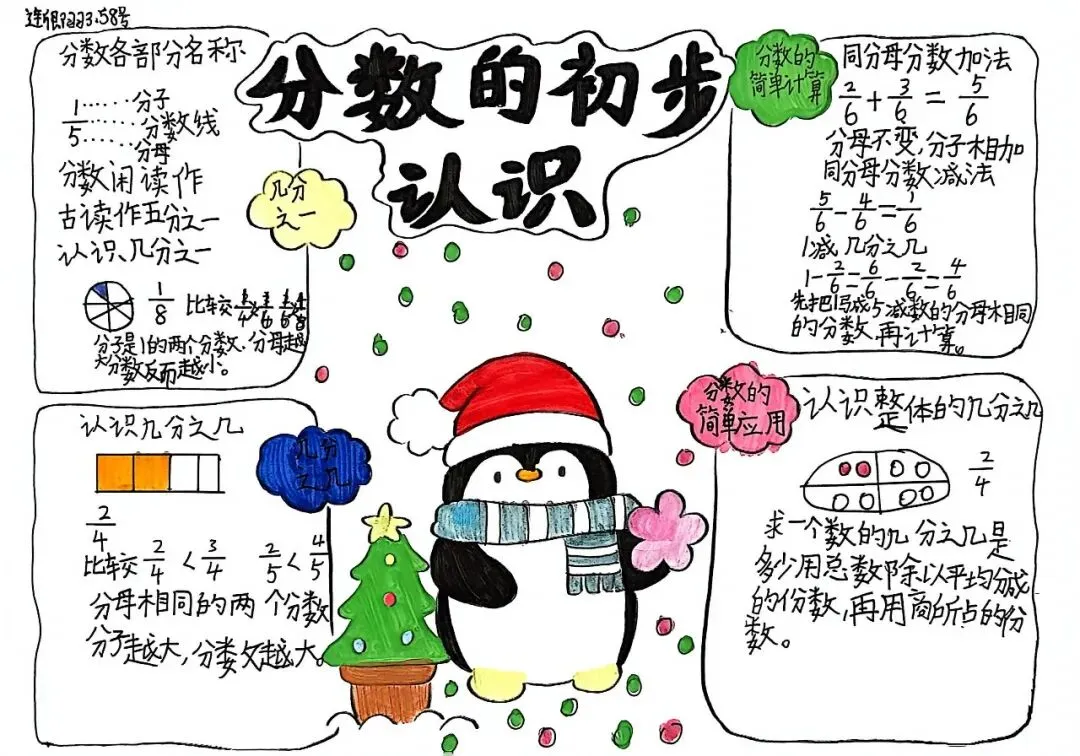 分数的初步
认识
分数各部分名称
1……分子
……分数线
5……分母
分数闲读作
古读作五分之一
认识、几分之一
1/8 比较
分子是1的两个分数、分母越
大分数反而越小。
几分
之一
认识几分之几
几分
之几
2/4
比较 2/4 < 3/4 2/5 < 4/5
分母相同的两个分数
分子越大,分数越大。
分数的
简单计算
同分母分数加法
2/6 + 3/6 = 5/6
分母不变,分子相加
同分母分数减法
5/6 - 4/6 = 1/6
1减几分之几
1 - 2/6 = 6/6 - 2/6 = 4/6
先把1写成与减数的分母相同
的分数,再计算。
分数的
简单应用
认识整体的几分之几
2/4
求一个数的几分之几是
多少用总数除以平均分成
的份数,再用商所占的份
数。